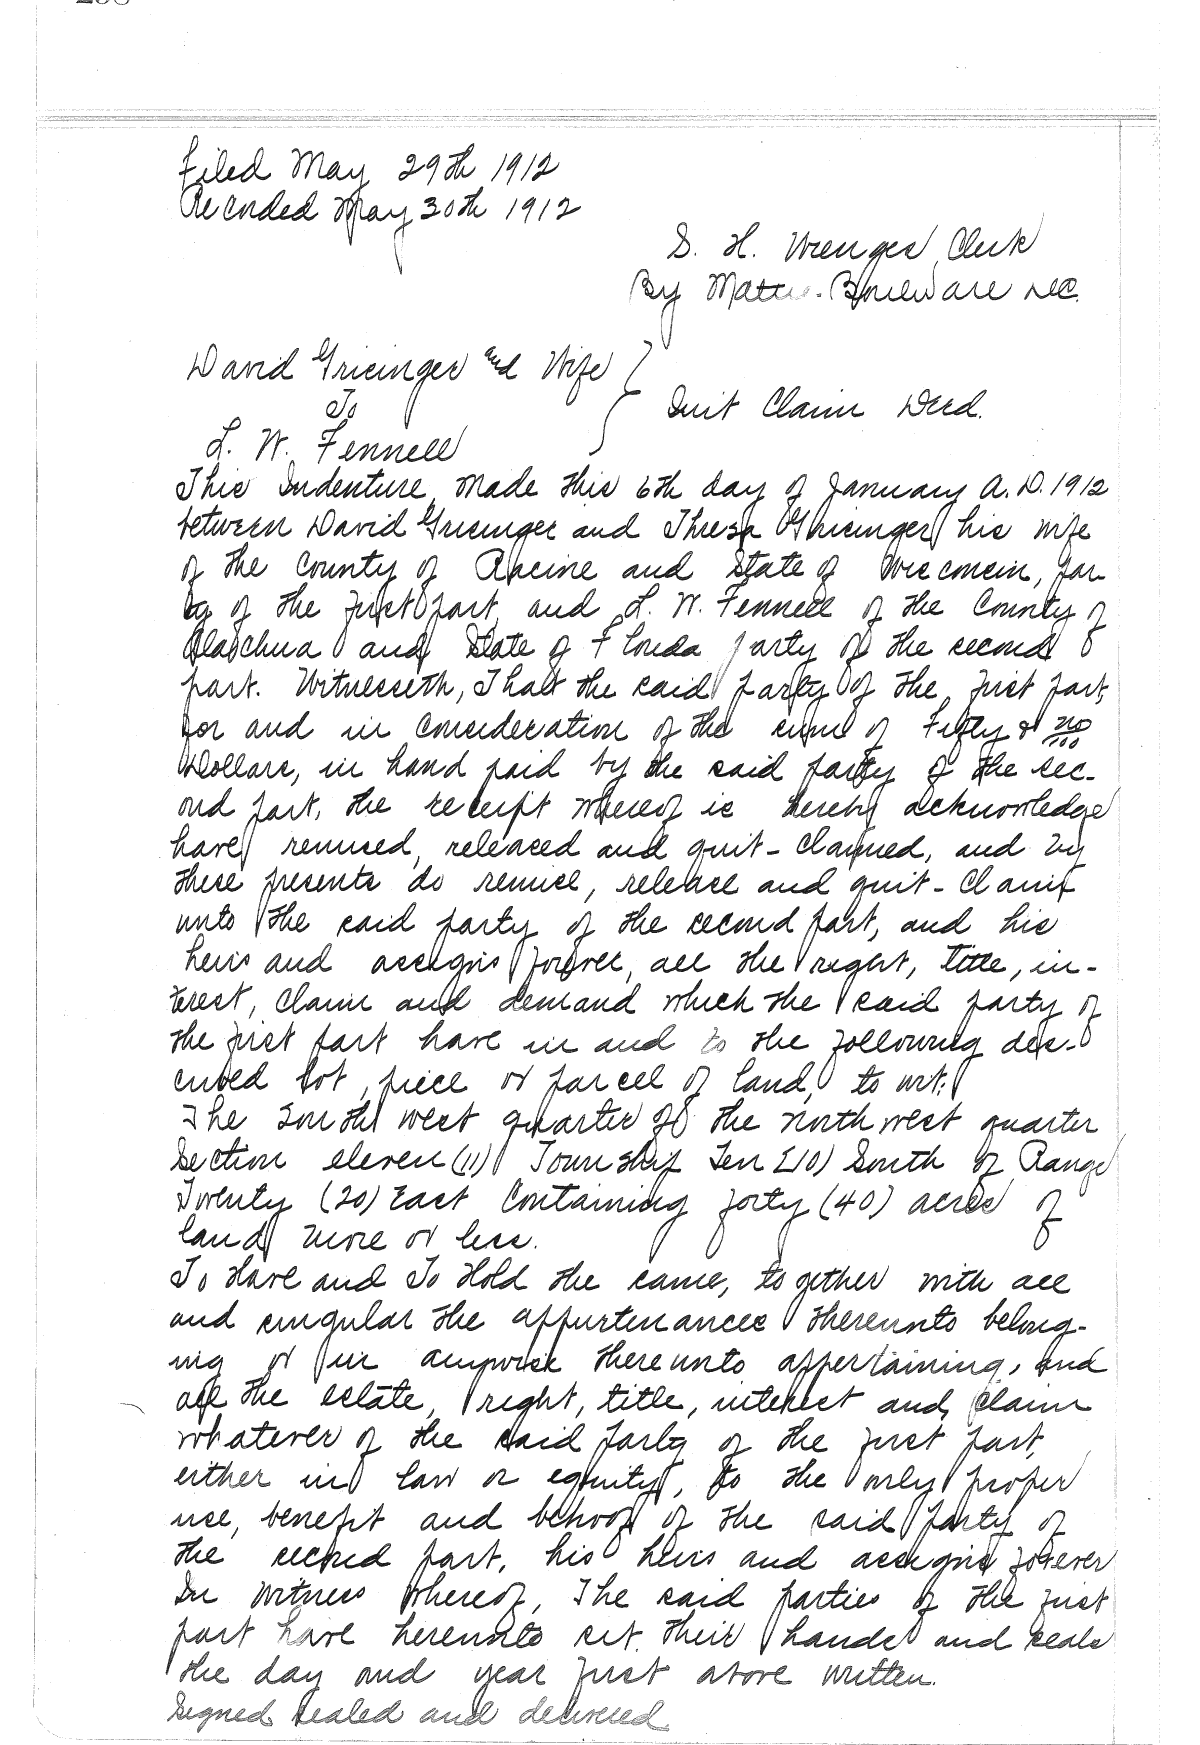 Filed May 29th 1912
Recorded May 30th 1912
S. H. Wienges, Clerk
By Mattie Bouleware D.C.
David Grisinger and Wife
To
Quit Claim Deed.
L. W. Fennell
This Indenture, Made this 6th day of January A. D. 1912
between David Grisinger and Thresa Grisinger, his wife
of the County of Racine and State of Wisconsin, par-
ty of the first part, and L. W. Fennell of the County of
Alachua and State of Florida party of the second
part. Witnesseth, That the said party of the first part,
for and in consideration of the sum of Fifty & no/100
Dollars, in hand paid by the said party of the sec-
ond part, the receipt whereof is hereby acknowledge
have remised, released and quit-claimed, and by
these presents do remise, release and quit-claim
unto the said party of the second part, and his
heirs and assigns forever, all the right, title, in-
terest, claim and demand which the said party of
the first part have in and to the following des-
cribed lot, piece or parcel of land, to wit:
The South west quarter of the northwest quarter
Section eleven (11) Township Ten (10) South of Range
Twenty (20) East Containing forty (40) acres of
land more or less.
To Have and To Hold the same, together with all
and singular the appurtenances thereunto belong-
ing or in anywise thereunto appertaining, and
all the estate, right, title, interest and claim
whatever of the said party of the first part,
either in law or equity, to the only proper
use, benefit and behoof of the said party of
the second part, his heirs and assigns forever
In Witness Whereof, The said parties of the first
part have hereunto set their hands and seals
the day and year first above written.
Signed, sealed and delivered